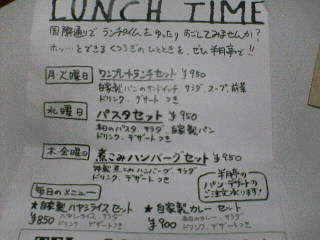 LUNCH TIME
国際通りでランチタイムをゆったりすごしてみませんか?
ホッ…とできるくつろぎのひとときを、ぜひ半月亭で!!
月・火曜日
ワンプレートランチセット ¥950
自家製パンのサンドイッチ、サラダ、スープ、前菜
ドリンク、デザートつき
水曜日
パスタセット ¥950
本日のパスタ、サラダ、自家製パン
ドリンク、デザートつき
木・金曜日
煮こみハンバーグセット ¥950
煮こみハンバーグ、サラダ
ドリンク、デザートつき
半月亭の
パン、デザートの
ご注文承ります!
毎日のメニュー
★自家製ハヤシライスセット
¥850
ハヤシライス、サラダ
ドリンク、デザートつき
★自家製カレーセット
¥900
本日のカレー、サラダ
ドリンク、デザートつき